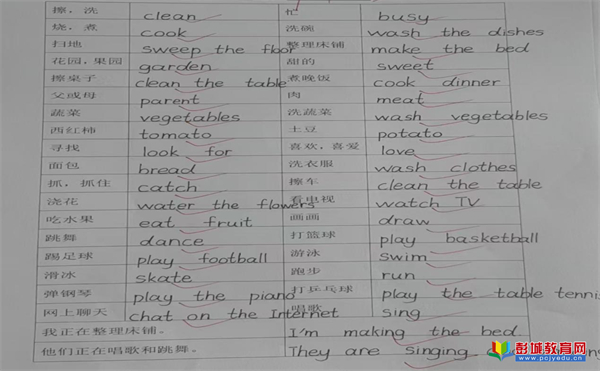 擦，洗 clean 忙 busy
烧，煮 cook 洗碗 wash the dishes
扫地 sweep the floor 整理床铺 make the bed
花园，果园 garden 甜的 sweet
擦桌子 clean the table 煮晚饭 cook dinner
父或母 parent 肉 meat
蔬菜 vegetables 洗蔬菜 wash vegetables
西红柿 tomato 土豆 potato
寻找 look for 喜欢，喜爱 love
面包 bread 洗衣服 wash clothes
抓，抓住 catch 擦车 clean the table
浇花 water the flowers 看电视 watch TV
吃水果 eat fruit 画画 draw
跳舞 dance 打篮球 play basketball
踢足球 play football 游泳 swim
滑冰 skate 跑步 run
弹钢琴 play the piano 打乒乓球 play the table tennis
网上聊天 chat on the Internet 唱歌 sing
我正在整理床铺。 I'm making the bed.
他们正在唱歌和跳舞。 They are singing
彭城教育网
www.pcjyedu.cn